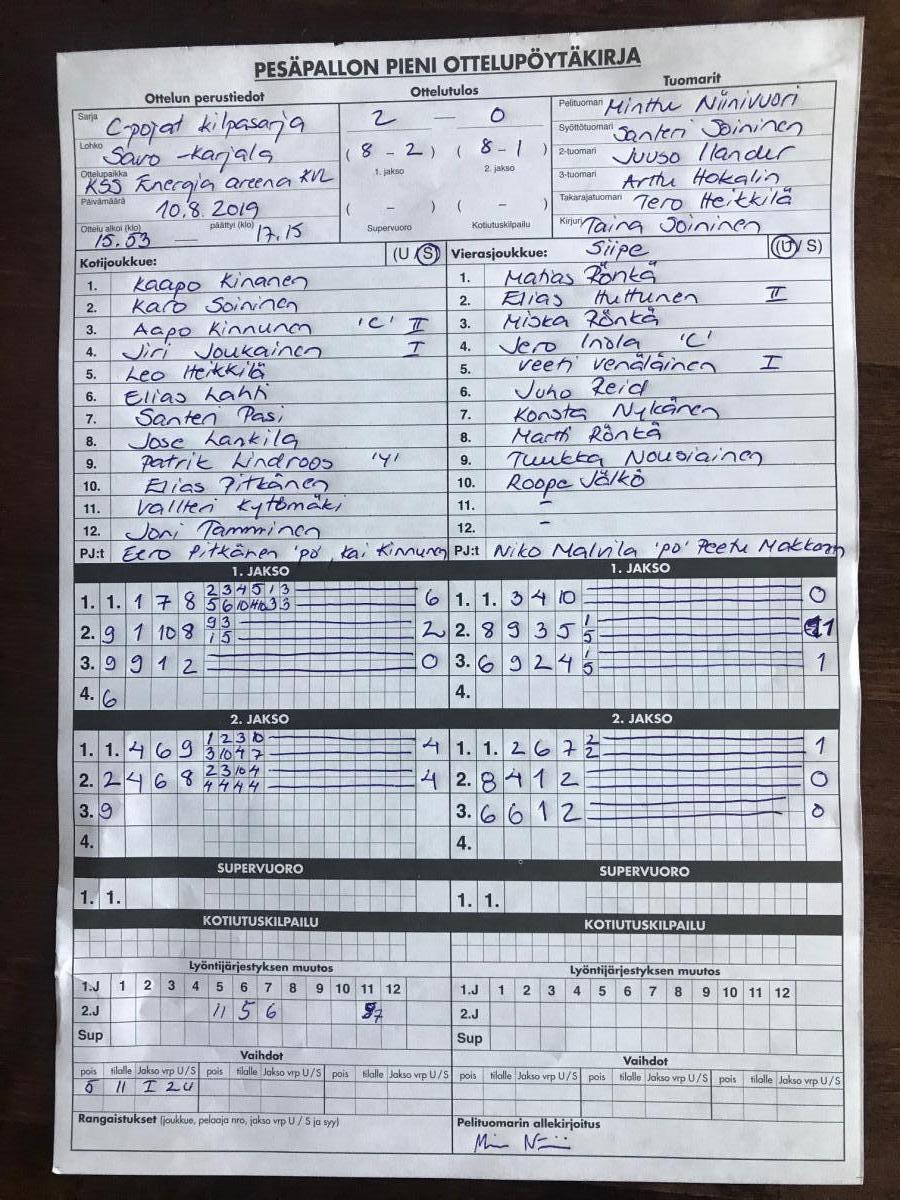 PESÄPALLON PIENI OTTELUPÖYTÄKIRJA
Ottelun perustiedot
Sarja C-pojat kilpasarja
Lohko Savo-Karjala
Ottelupaikka KSS Energia areena KVL
Päivämäärä 10.8.2019
Ottelu alkoi (klo) 15.53 — päättyi (klo) 17.15
Ottelutulos
2 — 0
( 8 - 2 ) ( 8 - 1 )
1. jakso 2. jakso
( - ) ( - )
Supervuoro Kotiutuskilpailu
Tuomarit
Pelituomari Minttu Niinivuori
Syöttötuomari Santeri Soininen
2-tuomari Juuso Ilander
3-tuomari Arttu Hokalin
Takarajatuomari Tero Heikkilä
Kirjuri Taina Soininen
Kotijoukkue: (U S)
1. Kaapo Kinanen
2. Karo Soininen
3. Aapo Kinnunen 'C' II
4. Jiri Joukainen I
5. Leo Heikkilä
6. Elias Lahti
7. Santeri Pasi
8. Jose Lankila
9. Patrik Lindroos 'Y'
10. Elias Pitkänen
11. Valtteri Kytömäki
12. Joni Tamminen
PJ:t Eero Pitkänen 'po', Kai Kinnunen
Vierasjoukkue: Siipe (U / S)
1. Matias Rönkä
2. Elias Huttunen II
3. Miska Rönkä
4. Jero Inola 'C'
5. Veeti Venäläinen I
6. Juho Reid
7. Konsta Nykänen
8. Martti Rönkä
9. Tuukka Nousiainen
10. Roope Jälkö
11. -
12. -
PJ:t Niko Malvila 'po' Peetu Makkonen
1. JAKSO
1. 1. 1 7 8 2 3 4 5 1 3 6
5 6 10 3 3
2. 9 1 10 8 9 3 2
1 5
3. 9 9 1 2 0
4. 6
1. JAKSO
1. 1. 3 4 10 0
2. 8 9 3 5 1 1
5
3. 6 9 2 4 1 1
5
4.
2. JAKSO
1. 1. 4 6 9 1 2 3 10 4
3 10 4 7
2. 2 4 6 8 2 3 10 4 4
4 4 4 4
3. 9
4.
2. JAKSO
1. 1. 2 6 7 2 1
2
2. 8 4 1 2 0
3. 6 6 1 2 0
4.
SUPERVUORO
1. 1.
SUPERVUORO
1. 1.
KOTIUTUSKILPAILU
KOTIUTUSKILPAILU
Lyöntijärjestyksen muutos
1.J 1 2 3 4 5 6 7 8 9 10 11 12
2.J 11 5 6 7
Sup
Lyöntijärjestyksen muutos
1.J 1 2 3 4 5 6 7 8 9 10 11 12
2.J
Sup
Vaihdot
pois tilalle Jakso vrp U/S pois tilalle Jakso vrp U/S pois tilalle Jakso vrp U/S
5 11 I 2U
Vaihdot
pois tilalle Jakso vrp U/S pois tilalle Jakso vrp U/S pois tilalle Jakso vrp U/S
Rangaistukset (joukkue, pelaaja nro, jakso vrp U / S ja syy)
Pelituomarin allekirjoitus